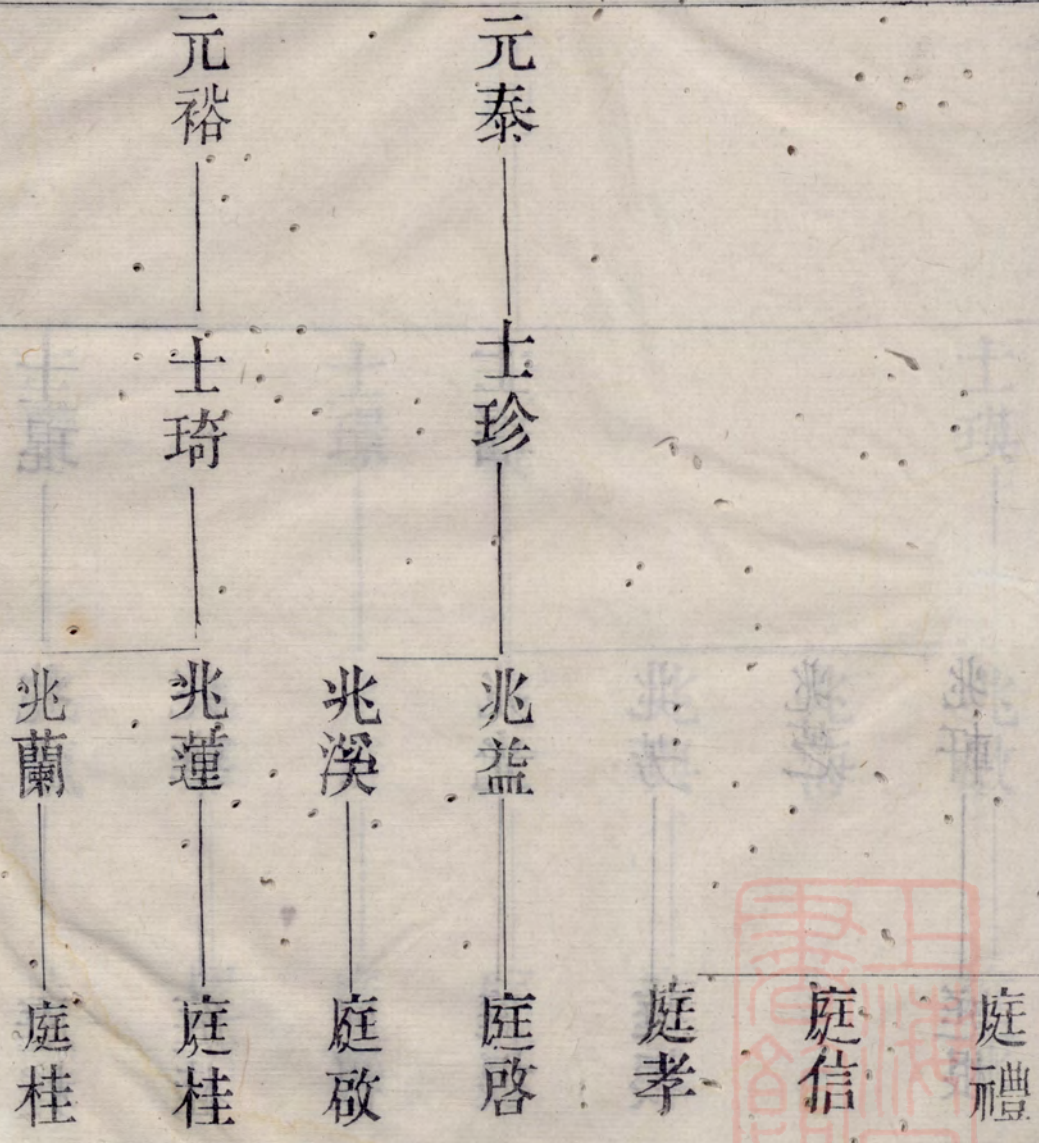 庭禮
庭信
庭孝
元泰
士珍
兆益
庭啓
兆溪
庭啟
元裕
士琦
兆蓮
庭桂
兆蘭
庭桂